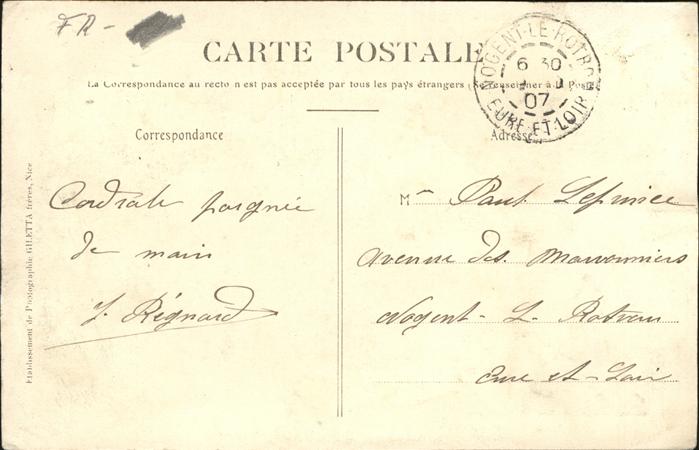 FR -
CARTE POSTALE
La Correspondance au recto n'est pas acceptée par tous les pays étrangers (Se renseigner à la Poste)
NOGENT-LE-ROTROU
6 30
07
EURE-ET-LOIR
Correspondance
Cordiale poignée
de main
J. Régnard
Adresse
M Paul Leprince
Avenue des Marronniers
Nogent-L-Rotrou
Eure et-Loir
Etablissement de Photographie GILETTA frères, Nice